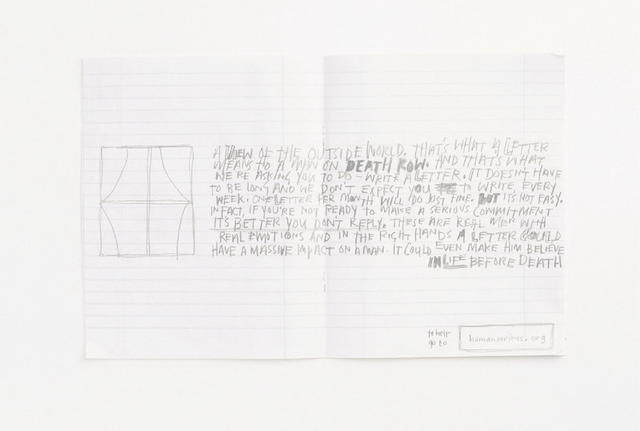 A VIEW OF THE OUTSIDE WORLD. THAT'S WHAT A LETTER
MEANS TO A MAN ON DEATH ROW. AND THAT'S WHAT
WE'RE ASKING YOU TO DO - WRITE A LETTER. IT DOESN'T HAVE
TO BE LONG AND WE DON'T EXPECT YOU TO WRITE EVERY
WEEK. ONE LETTER PER MONTH WILL DO JUST FINE. BUT ITS NOT EASY.
IN FACT, IF YOU'RE NOT READY TO MAKE A SERIOUS COMMITMENT
IT'S BETTER YOU DON'T REPLY. THESE ARE REAL MEN WITH
REAL EMOTIONS AND IN THE RIGHT HANDS A LETTER COULD
HAVE A MASSIVE IMPACT ON A MAN. IT COULD EVEN MAKE HIM BELIEVE
IN LIFE BEFORE DEATH
to help
go to
humanwrites.org